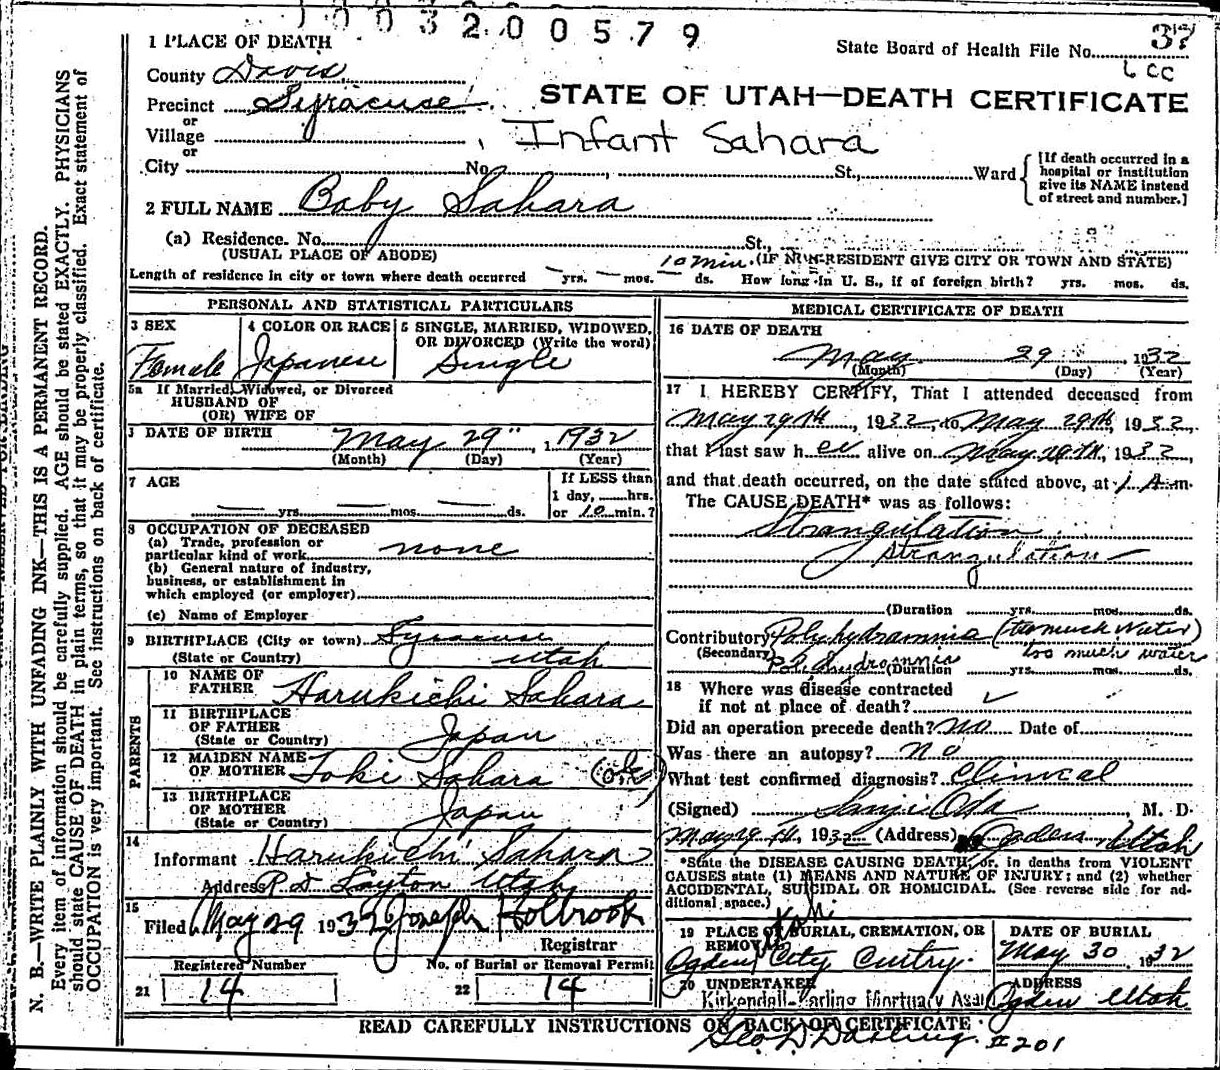 1003200579
1 PLACE OF DEATH
State Board of Health File No. 37
6 CC
County Davis
Precinct Syracuse
STATE OF UTAH—DEATH CERTIFICATE
or
Village
Infant Sahara
or
City No. St., Ward
[If death occurred in a
hospital or institution
give its NAME instead
of street and number.]
2 FULL NAME Baby Sahara
(a) Residence. No. St.,
(USUAL PLACE OF ABODE) (IF NON-RESIDENT GIVE CITY OR TOWN AND STATE)
Length of residence in city or town where death occurred — yrs. — mos. 10 min. ds. How long in U. S., if of foreign birth? yrs. mos. ds.
PERSONAL AND STATISTICAL PARTICULARS
3 SEX
Female
4 COLOR OR RACE
Japanese
5 SINGLE, MARRIED, WIDOWED,
OR DIVORCED (Write the word)
Single
5a If Married, Widowed, or Divorced
HUSBAND OF
(OR) WIFE OF
DATE OF BIRTH
May 29" , 1932
(Month) (Day) (Year)
7 AGE
— yrs. — mos. — ds.
If LESS than
1 day, hrs.
or 10 min.?
8 OCCUPATION OF DECEASED
(a) Trade, profession or
particular kind of work none
(b) General nature of industry,
business, or establishment in
which employed (or employer)
(c) Name of Employer
9 BIRTHPLACE (City or town) Syracuse
(State or Country) Utah
PARENTS
10 NAME OF
FATHER Harukichi Sahara
11 BIRTHPLACE
OF FATHER
(State or Country) Japan
12 MAIDEN NAME
OF MOTHER Toki Sahara (ok)
13 BIRTHPLACE
OF MOTHER
(State or Country) Japan
14
Informant Harukichi Sahara
Address R D Layton Utah
15
Filed May 29 1932 Joseph Holbrook
Registrar
Registered Number No. of Burial or Removal Permit
21 14 22 14
MEDICAL CERTIFICATE OF DEATH
16 DATE OF DEATH
May 29 , 1932
(Month) (Day) (Year)
17 I HEREBY CERTIFY, That I attended deceased from
May 29th, 1932, to May 29th, 1932,
that I last saw her alive on May 29th, 1932,
and that death occurred, on the date stated above, at 1 A.m.
The CAUSE DEATH* was as follows:
Strangulation
Strangulation
(Duration yrs. mos. ds.
Contributory Polyhydramnia (too much water)
too much water
(Secondary)
(Duration yrs. mos. ds.
18 Where was disease contracted
if not at place of death? ✓
Did an operation precede death? No Date of
Was there an autopsy? no
What test confirmed diagnosis? Clinical
(Signed) Sanji Oda M. D.
May 29 th, 1932 (Address) Ogden Utah
*State the DISEASE CAUSING DEATH, or, in deaths from VIOLENT
CAUSES state (1) MEANS AND NATURE OF INJURY; and (2) whether
ACCIDENTAL, SUICIDAL OR HOMICIDAL. (See reverse side for ad-
ditional space.)
19 PLACE OF BURIAL, CREMATION, OR
REMOVAL
Ogden City Cmtry.
DATE OF BURIAL
May 30, 1932
20 UNDERTAKER
Kirkendall-Darling Mortuary Assn
ADDRESS
Ogden Utah
READ CAREFULLY INSTRUCTIONS ON BACK OF CERTIFICATE
Geo. W. Darling. #201
N. B.—WRITE PLAINLY WITH UNFADING INK—THIS IS A PERMANENT RECORD.
Every item of information should be carefully supplied. AGE should be stated EXACTLY. PHYSICIANS
should state CAUSE OF DEATH in plain terms, so that it may be properly classified. Exact statement of
OCCUPATION is very important. See instructions on back of certificate.